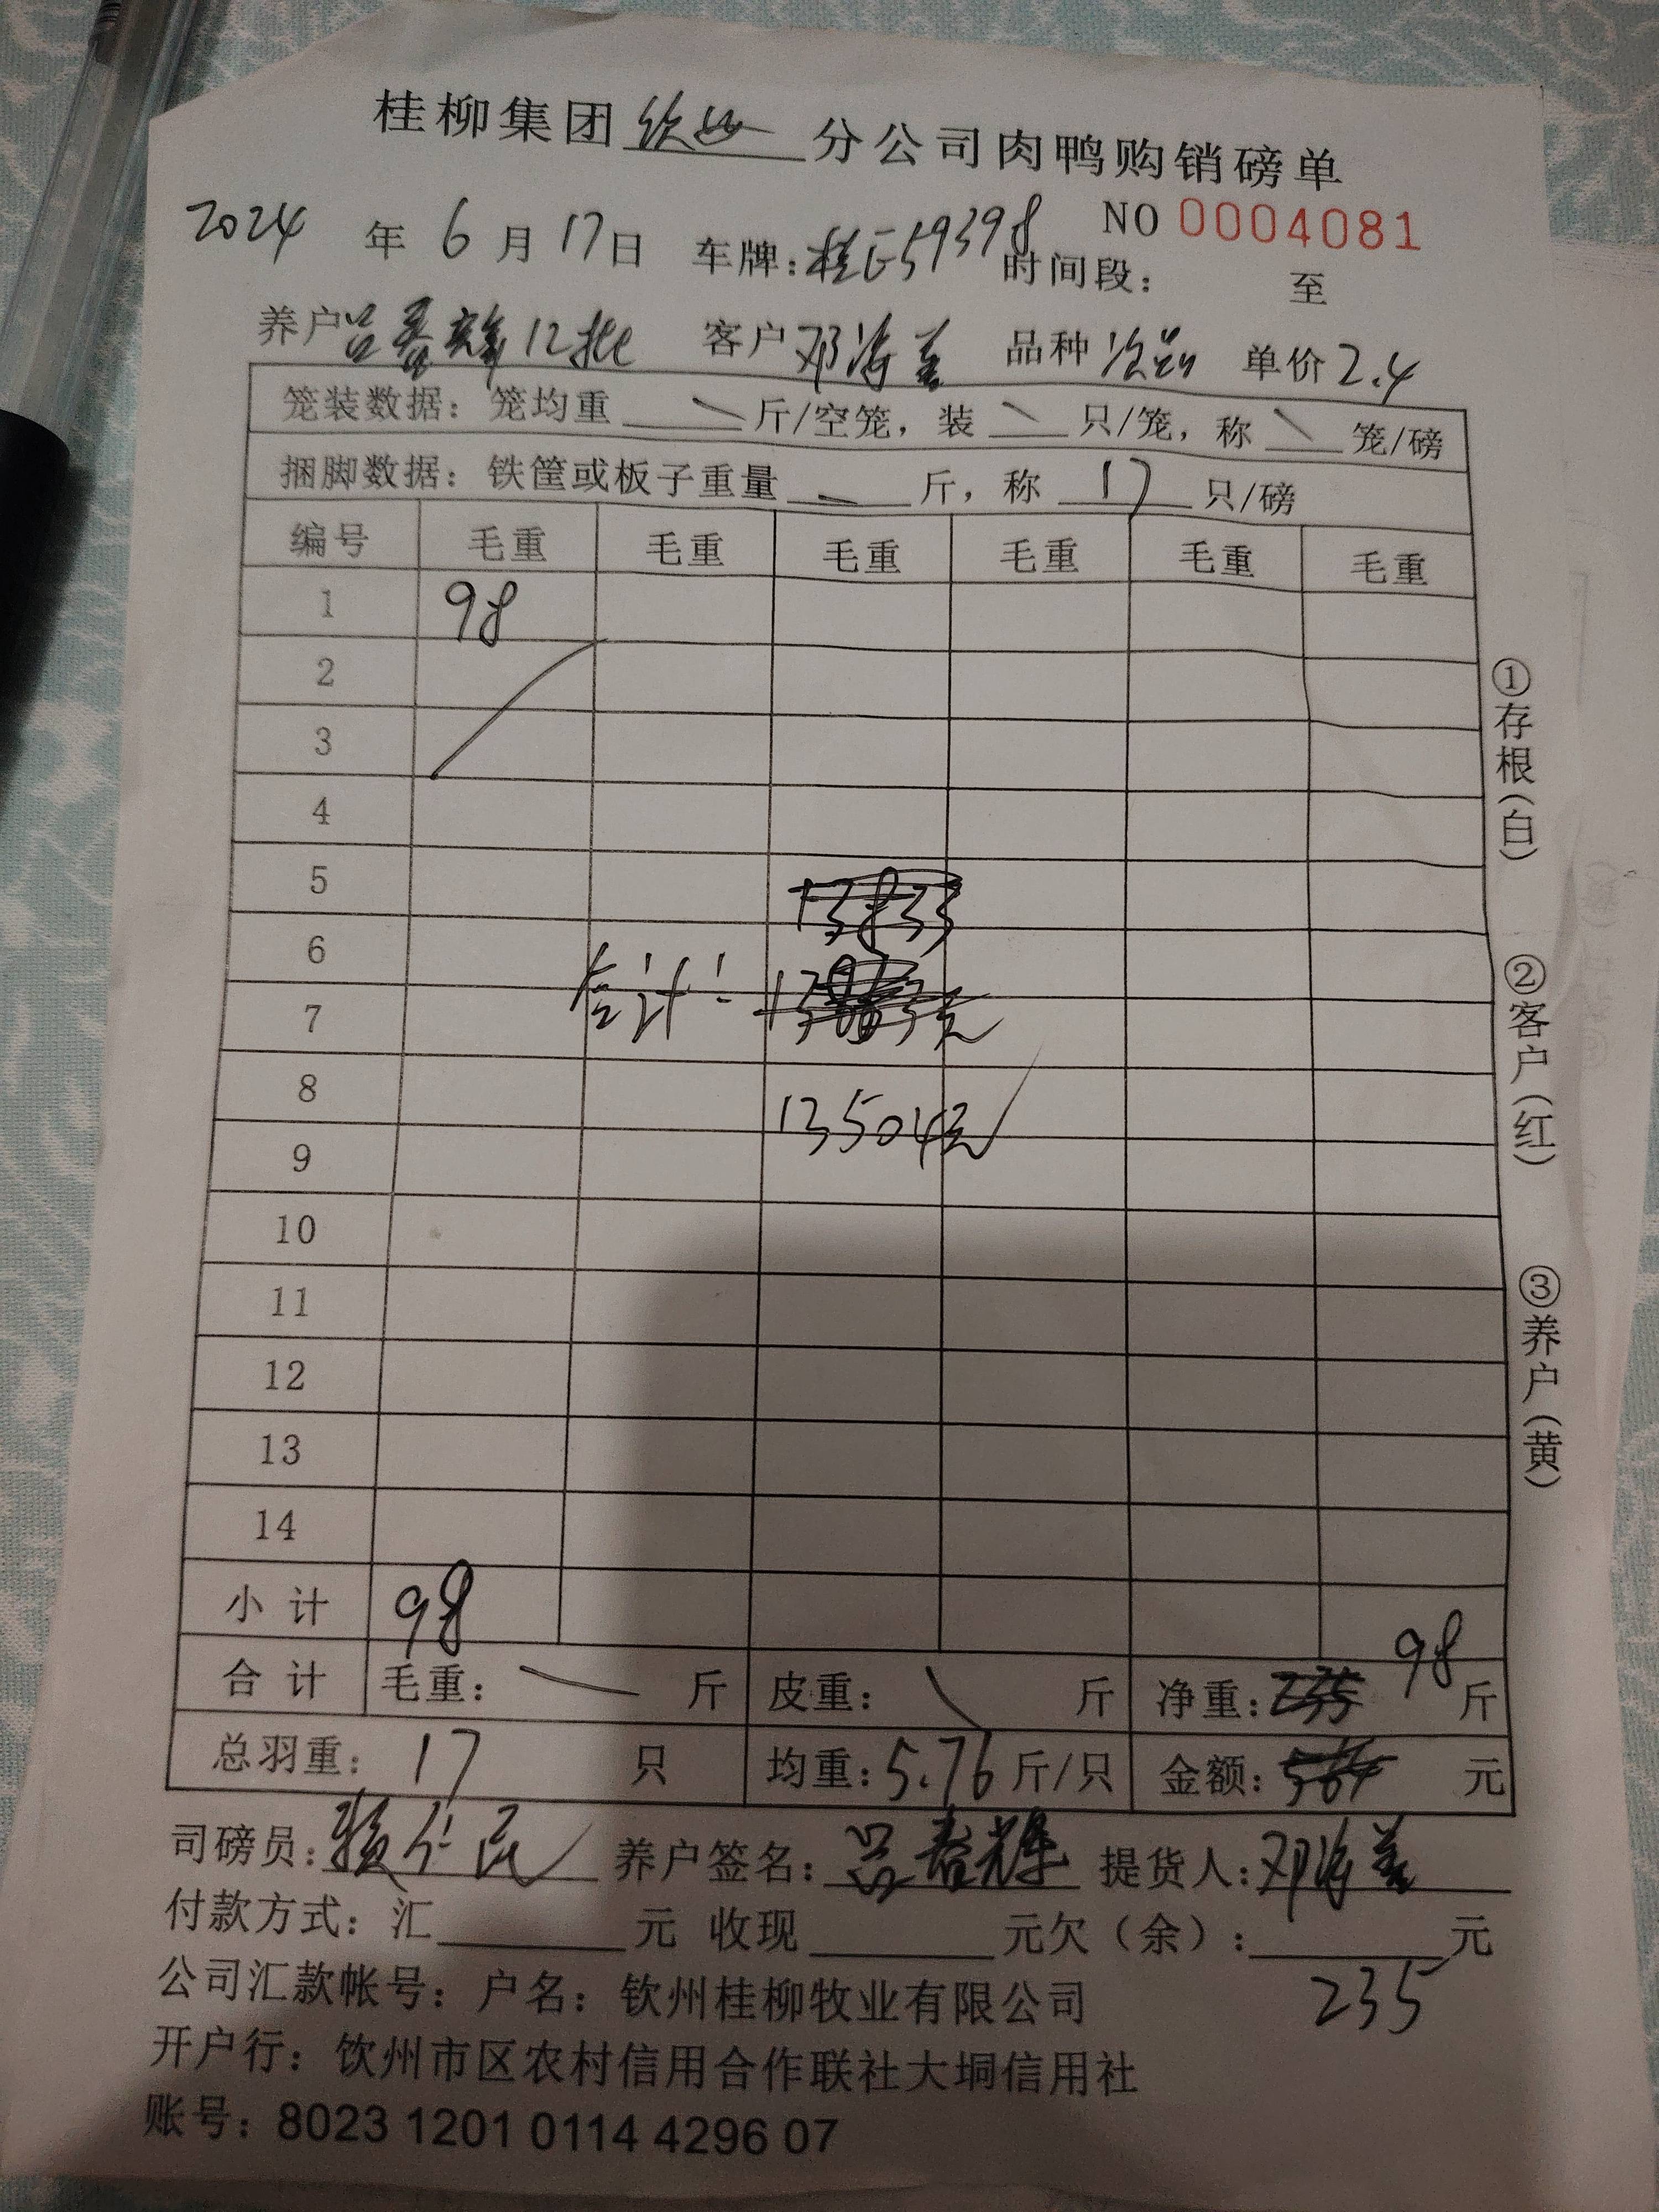 桂柳集团钦州分公司肉鸭购销磅单
NO 0004081
2024年6月17日 车牌:桂E59398 时间段: 至
养户吕春辉12批 客户邓海 品种次品 单价2.4
笼装数据: 笼均重 斤/空笼, 装 只/笼, 称 笼/磅
捆脚数据: 铁筐或板子重量 斤, 称 17 只/磅
编号 毛重 毛重 毛重 毛重 毛重 毛重
1 98
2
3
4
5
6
合计:
7
8
13504元
9
10
11
12
13
14
小计 98
98
合计 毛重: 斤 皮重: 斤 净重: 斤
总羽重: 17 只 均重: 5.76 斤/只 金额: 元
司磅员: 赖仁民 养户签名: 吕春辉 提货人: 邓海
付款方式: 汇 元 收现 元欠(余): 元
235
公司汇款帐号: 户名: 钦州桂柳牧业有限公司
开户行: 饮州市区农村信用合作联社大垌信用社
账号: 8023 1201 0114 4296 07
①存根(白)
②客户(红)
③养户(黄)